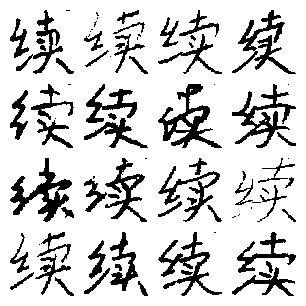 续续续续
续续续续
续续续续
续续续续